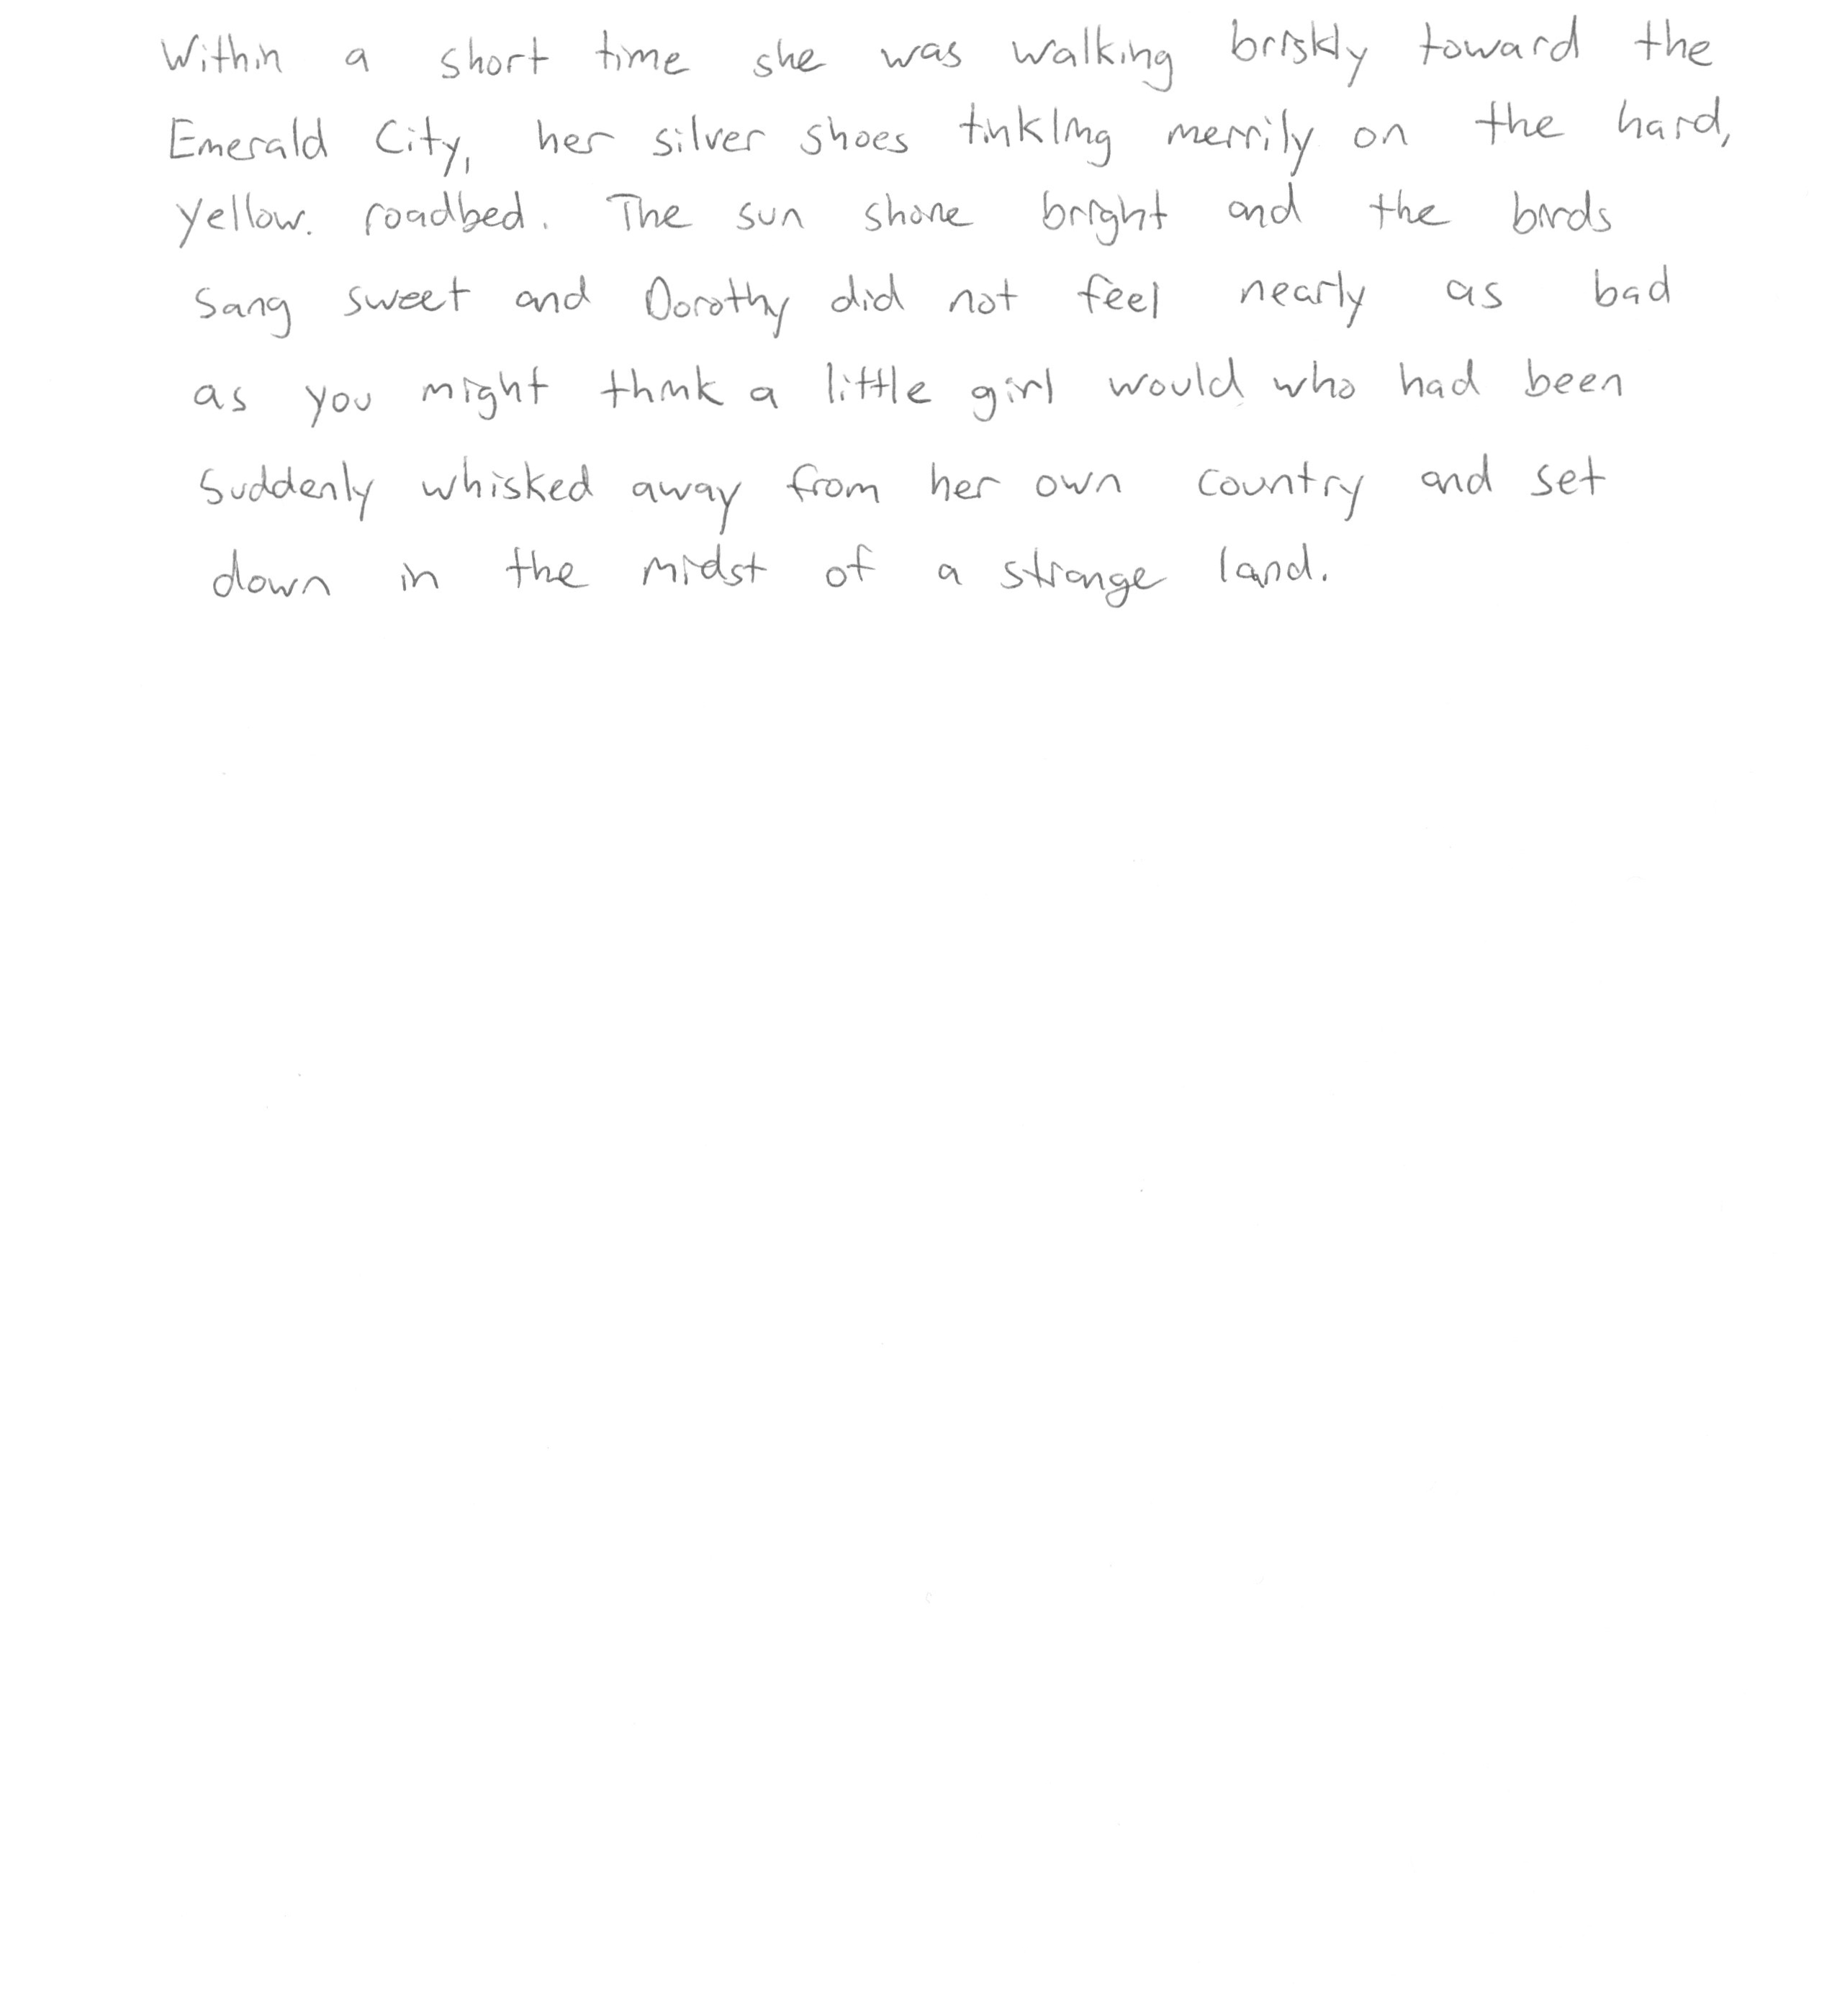 Within a short time she was walking briskly toward the
Emerald City, her silver shoes tinkling merrily on the hard,
yellow. roadbed. The sun shone bright and the birds
sang sweet and Dorothy did not feel nearly as bad
as you might think a little girl would who had been
suddenly whisked away from her own country and set
down in the midst of a strange land.